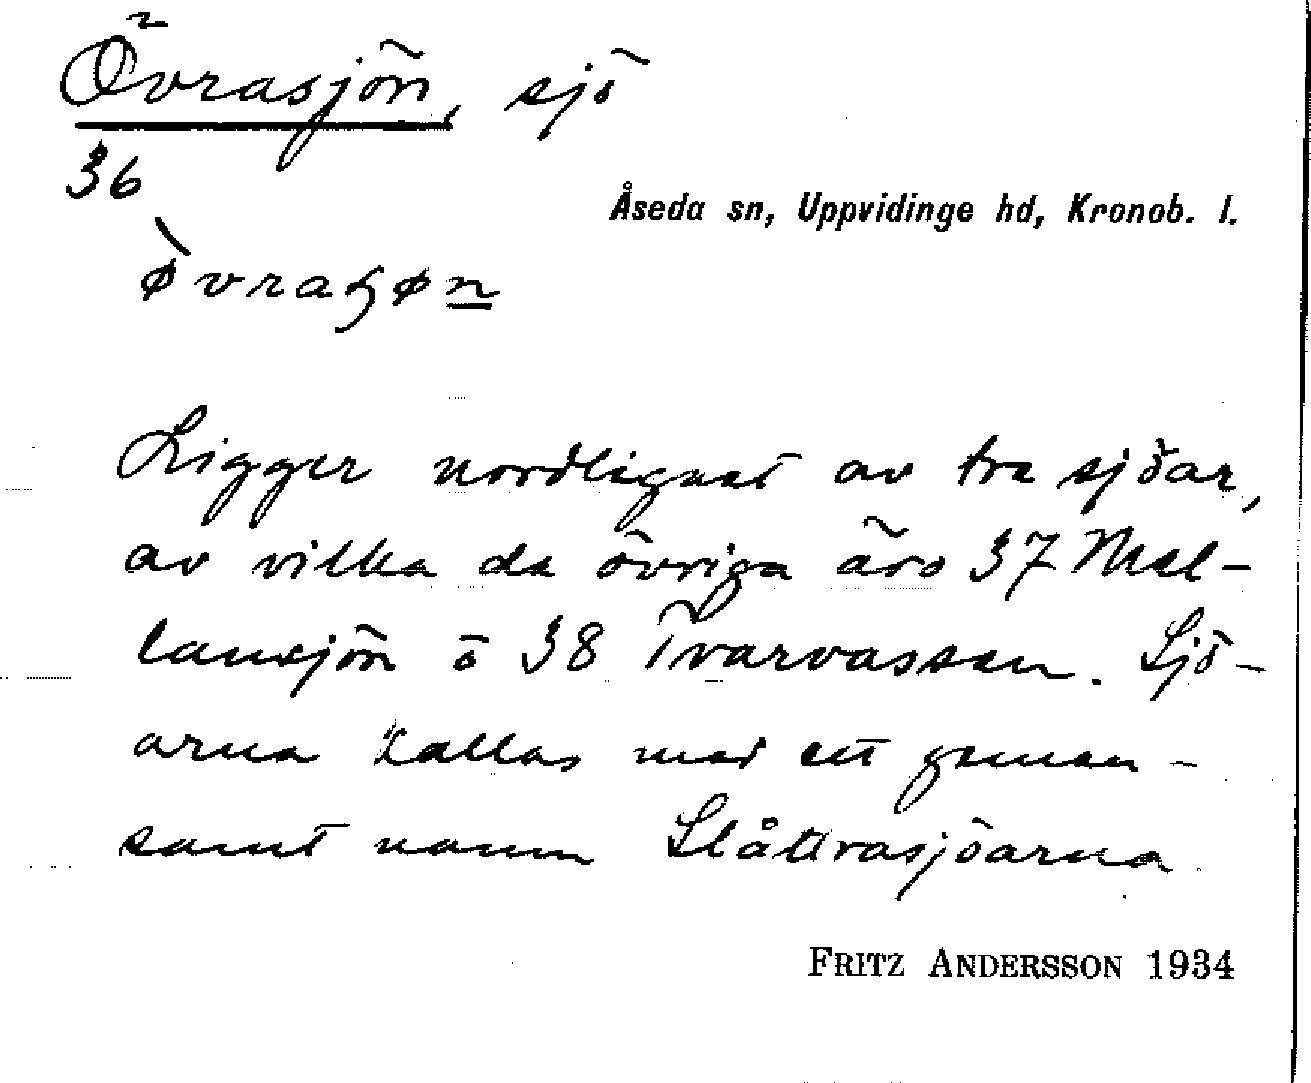 Övrasjön, sjö
36
Åseda sn, Uppvidinge hd, Kronob. l.
Ligger nordligast av tre sjöar,
av vilka de övriga äro 37 Mel-
lansjön o 38 Tvärvassen. Sjö-
arna kallas med ett gemen-
samt namn Slättrasjöarna
FRITZ ANDERSSON 1934